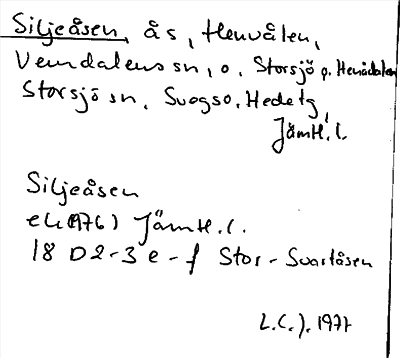 Siljeåsen, ås, Henvålen,
Vemdalens sn, o. Storsjö p. Henådalen
Storsjö sn, Svegs o. Hede tg,
Jämtl. l.
Siljeåsen
ek (1976) Jämtl. l.
18 D 2-3 e-f Stor-Svartåsen
L.C.J. 1977